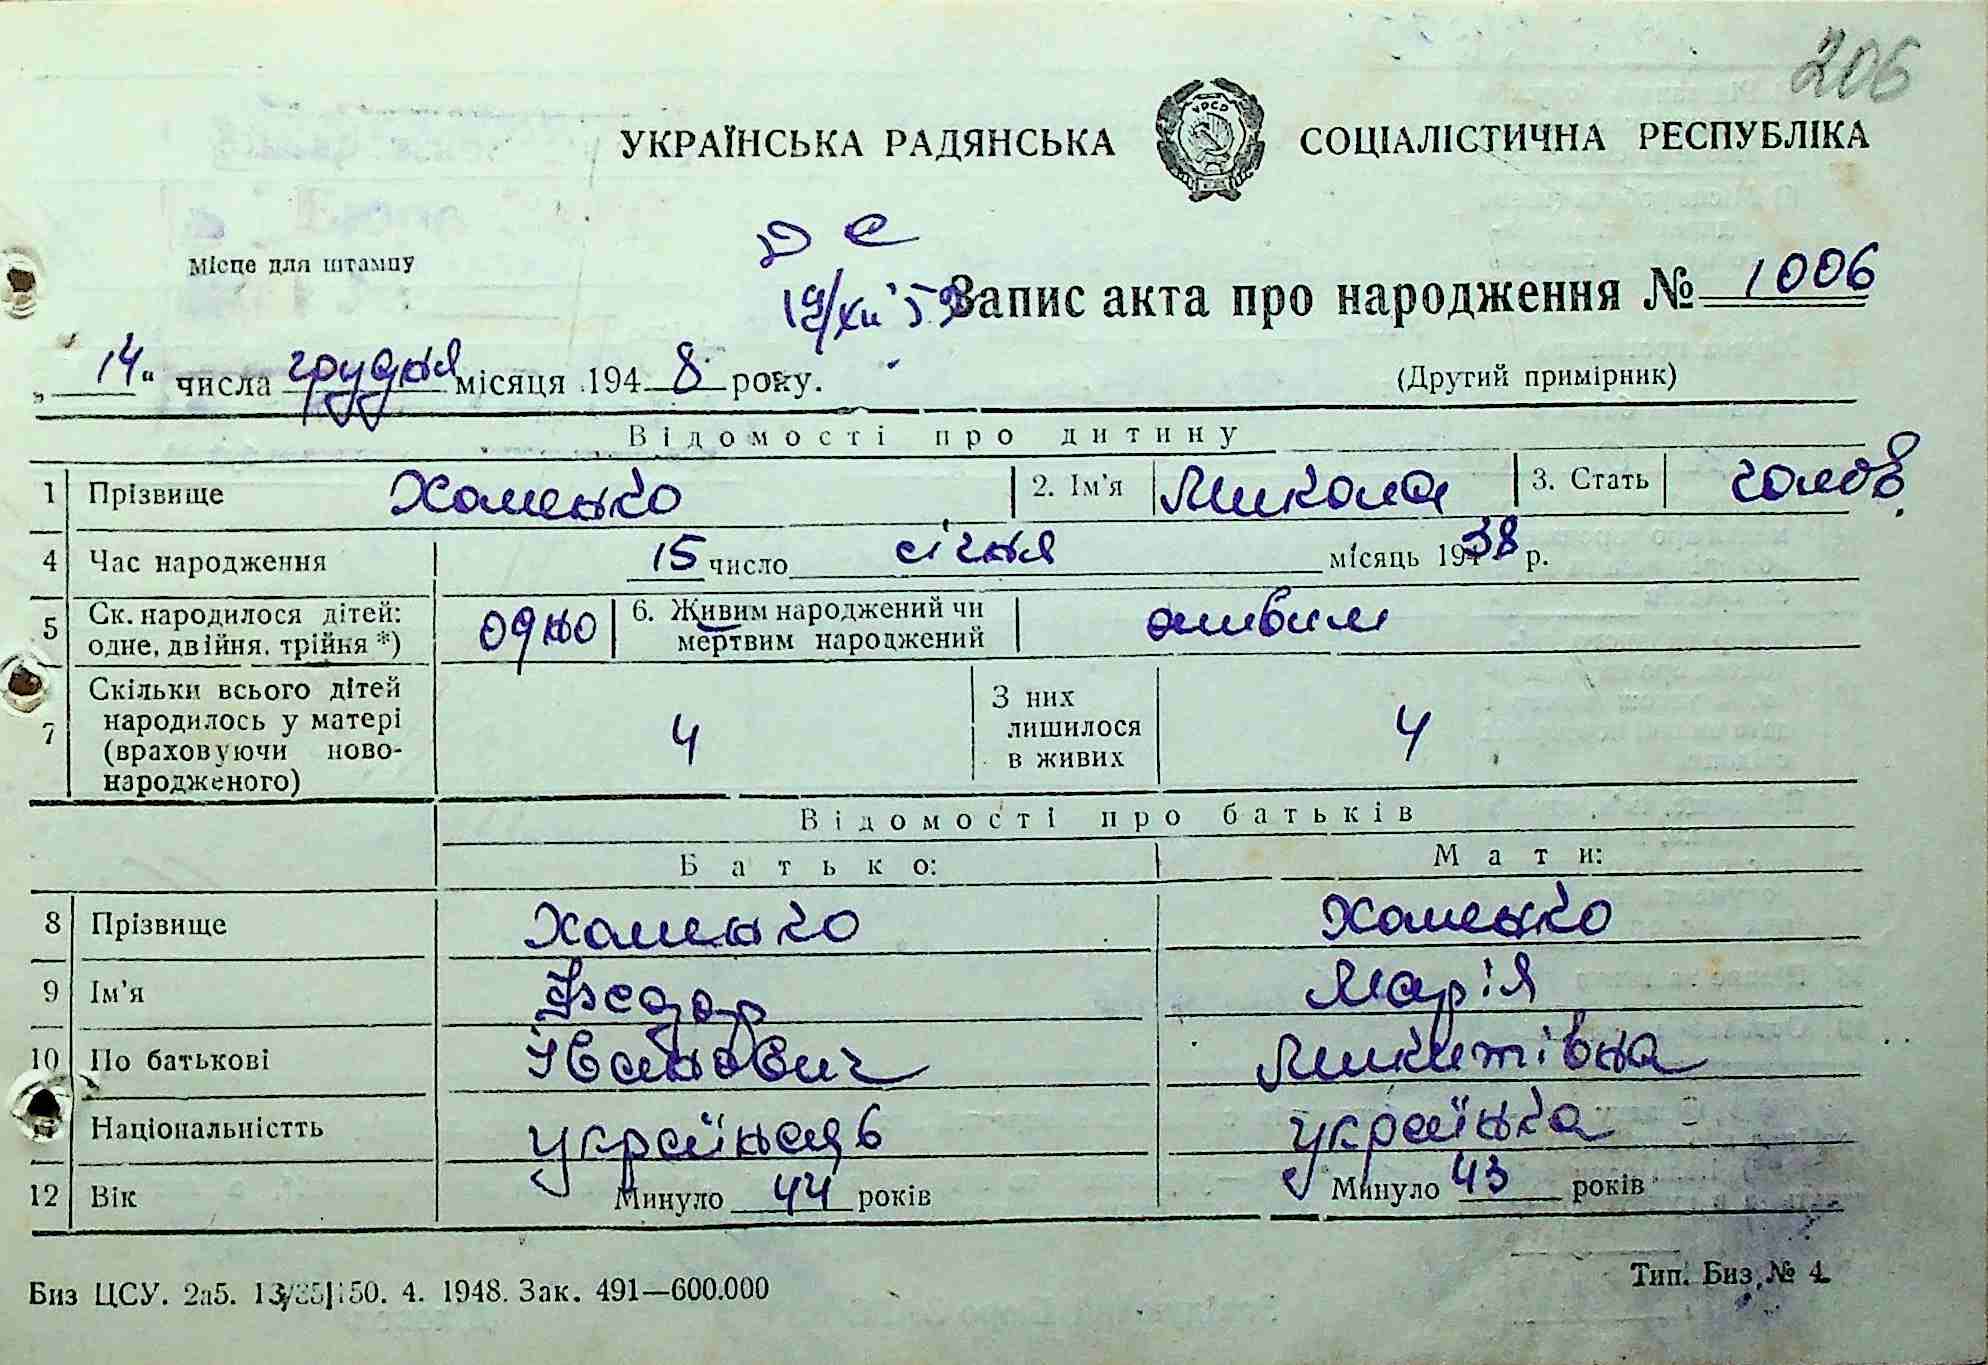 206
УКРАЇНСЬКА РАДЯНСЬКА СОЦІАЛІСТИЧНА РЕСПУБЛІКА
УРСР
Місце для штампу
19/XII 5
Запис акта про народження № 1006
„14“ числа грудня місяця 1948 року.
(Другий примірник)
Відомості про дитину
1 Прізвище Хоменько 2. Ім'я Микола 3. Стать чолов.
4 Час народження 15 число січня місяць 1938 р.
5 Ск. народилося дітей: одне, двійня, трійня *) одно 6. Живим народжений чи мертвим народжений живим
7 Скільки всього дітей народилось у матері (враховуючи ново-народженого) 4 З них лишилося в живих 4
Відомості про батьків
Батько: Мати:
8 Прізвище Хоменько Хоменько
9 Ім'я Федор Марія
10 По батькові Іванович Микитівна
11 Національністть українець українка
12 Вік Минуло 44 років Минуло 43 років
Биз ЦСУ. 2а5. 1948. Зак. 491—600.000
Тип. Биз, № 4.